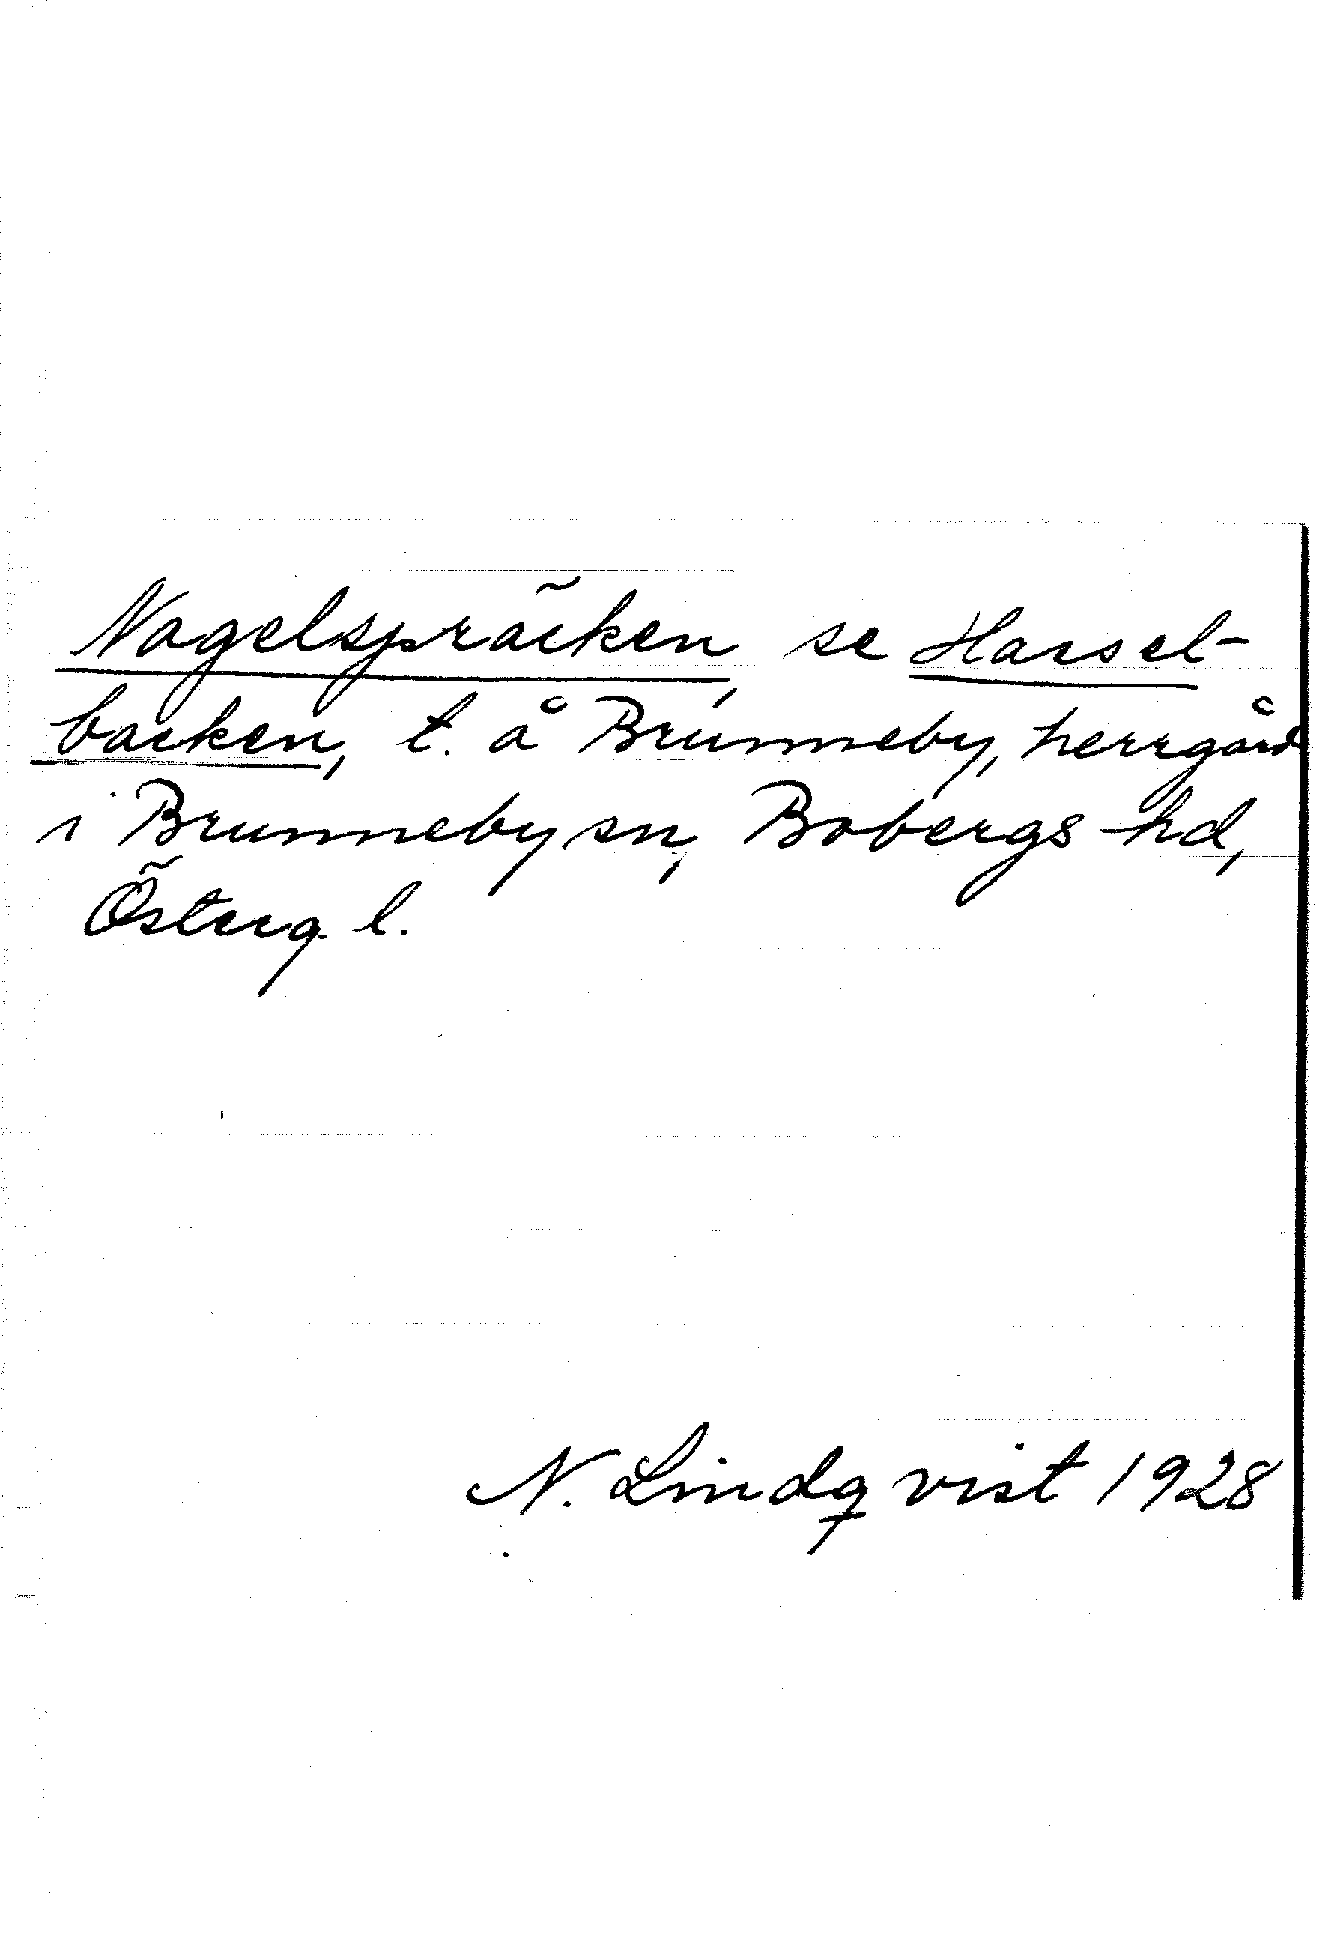 Nagelspräcken se Harsel-
backen, t. å Brunneby, herrgård
i Brunneby sn, Bobergs hd,
Österg. l.
N. Lindqvist 1928